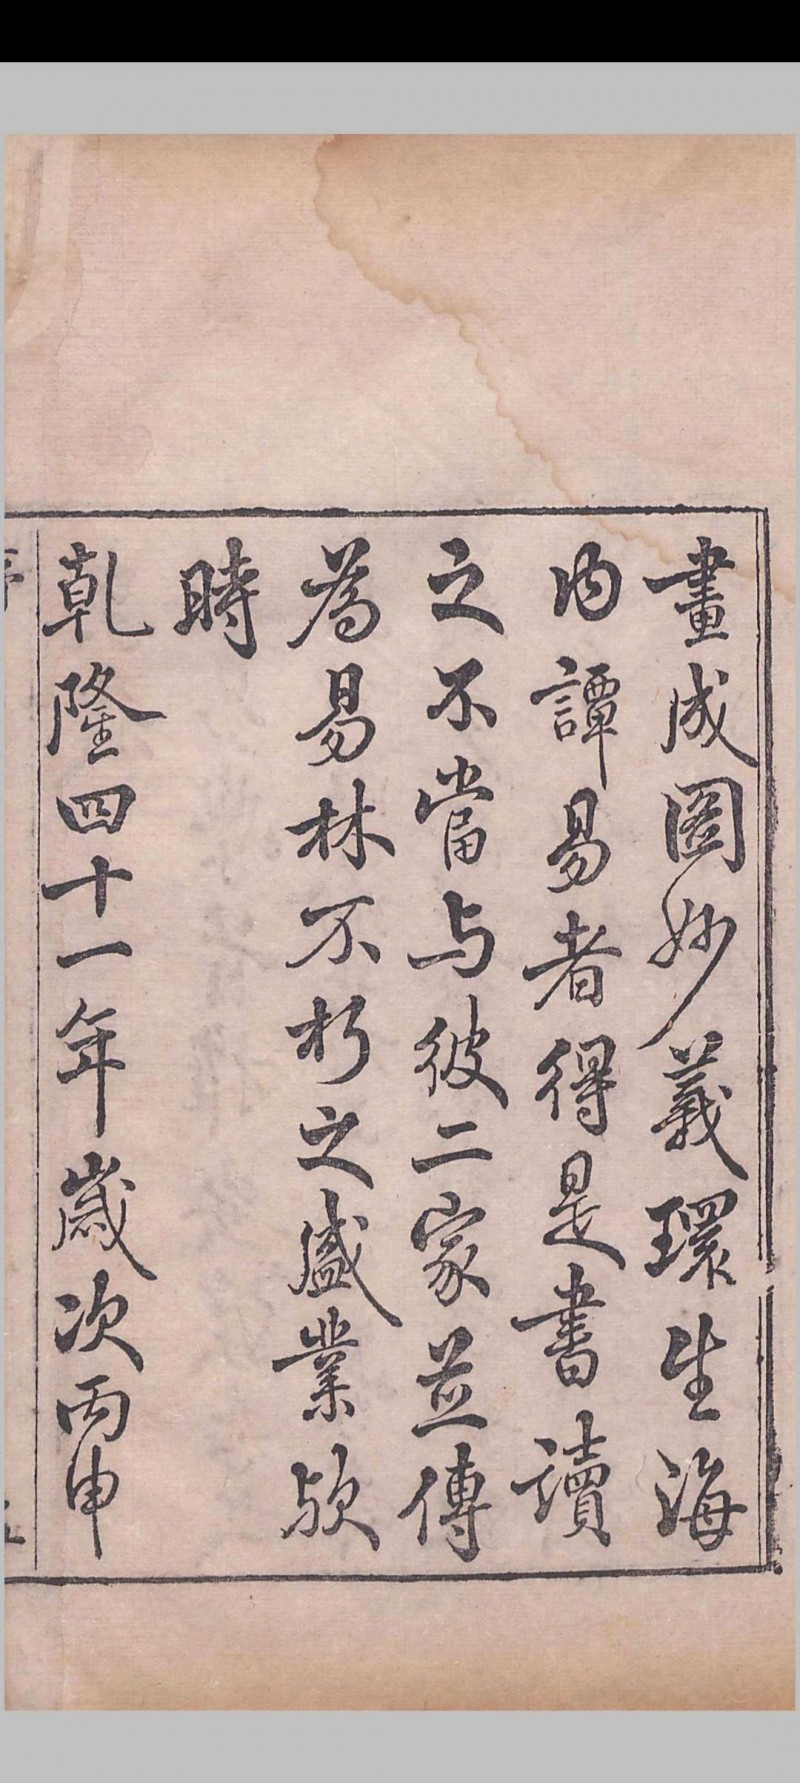 畫成圖妙義環生海
內譚易者得是書讀
之不當与彼二家並傳
為易林不朽之盛業歟
時
乾隆四十一年歲次丙申
序
五